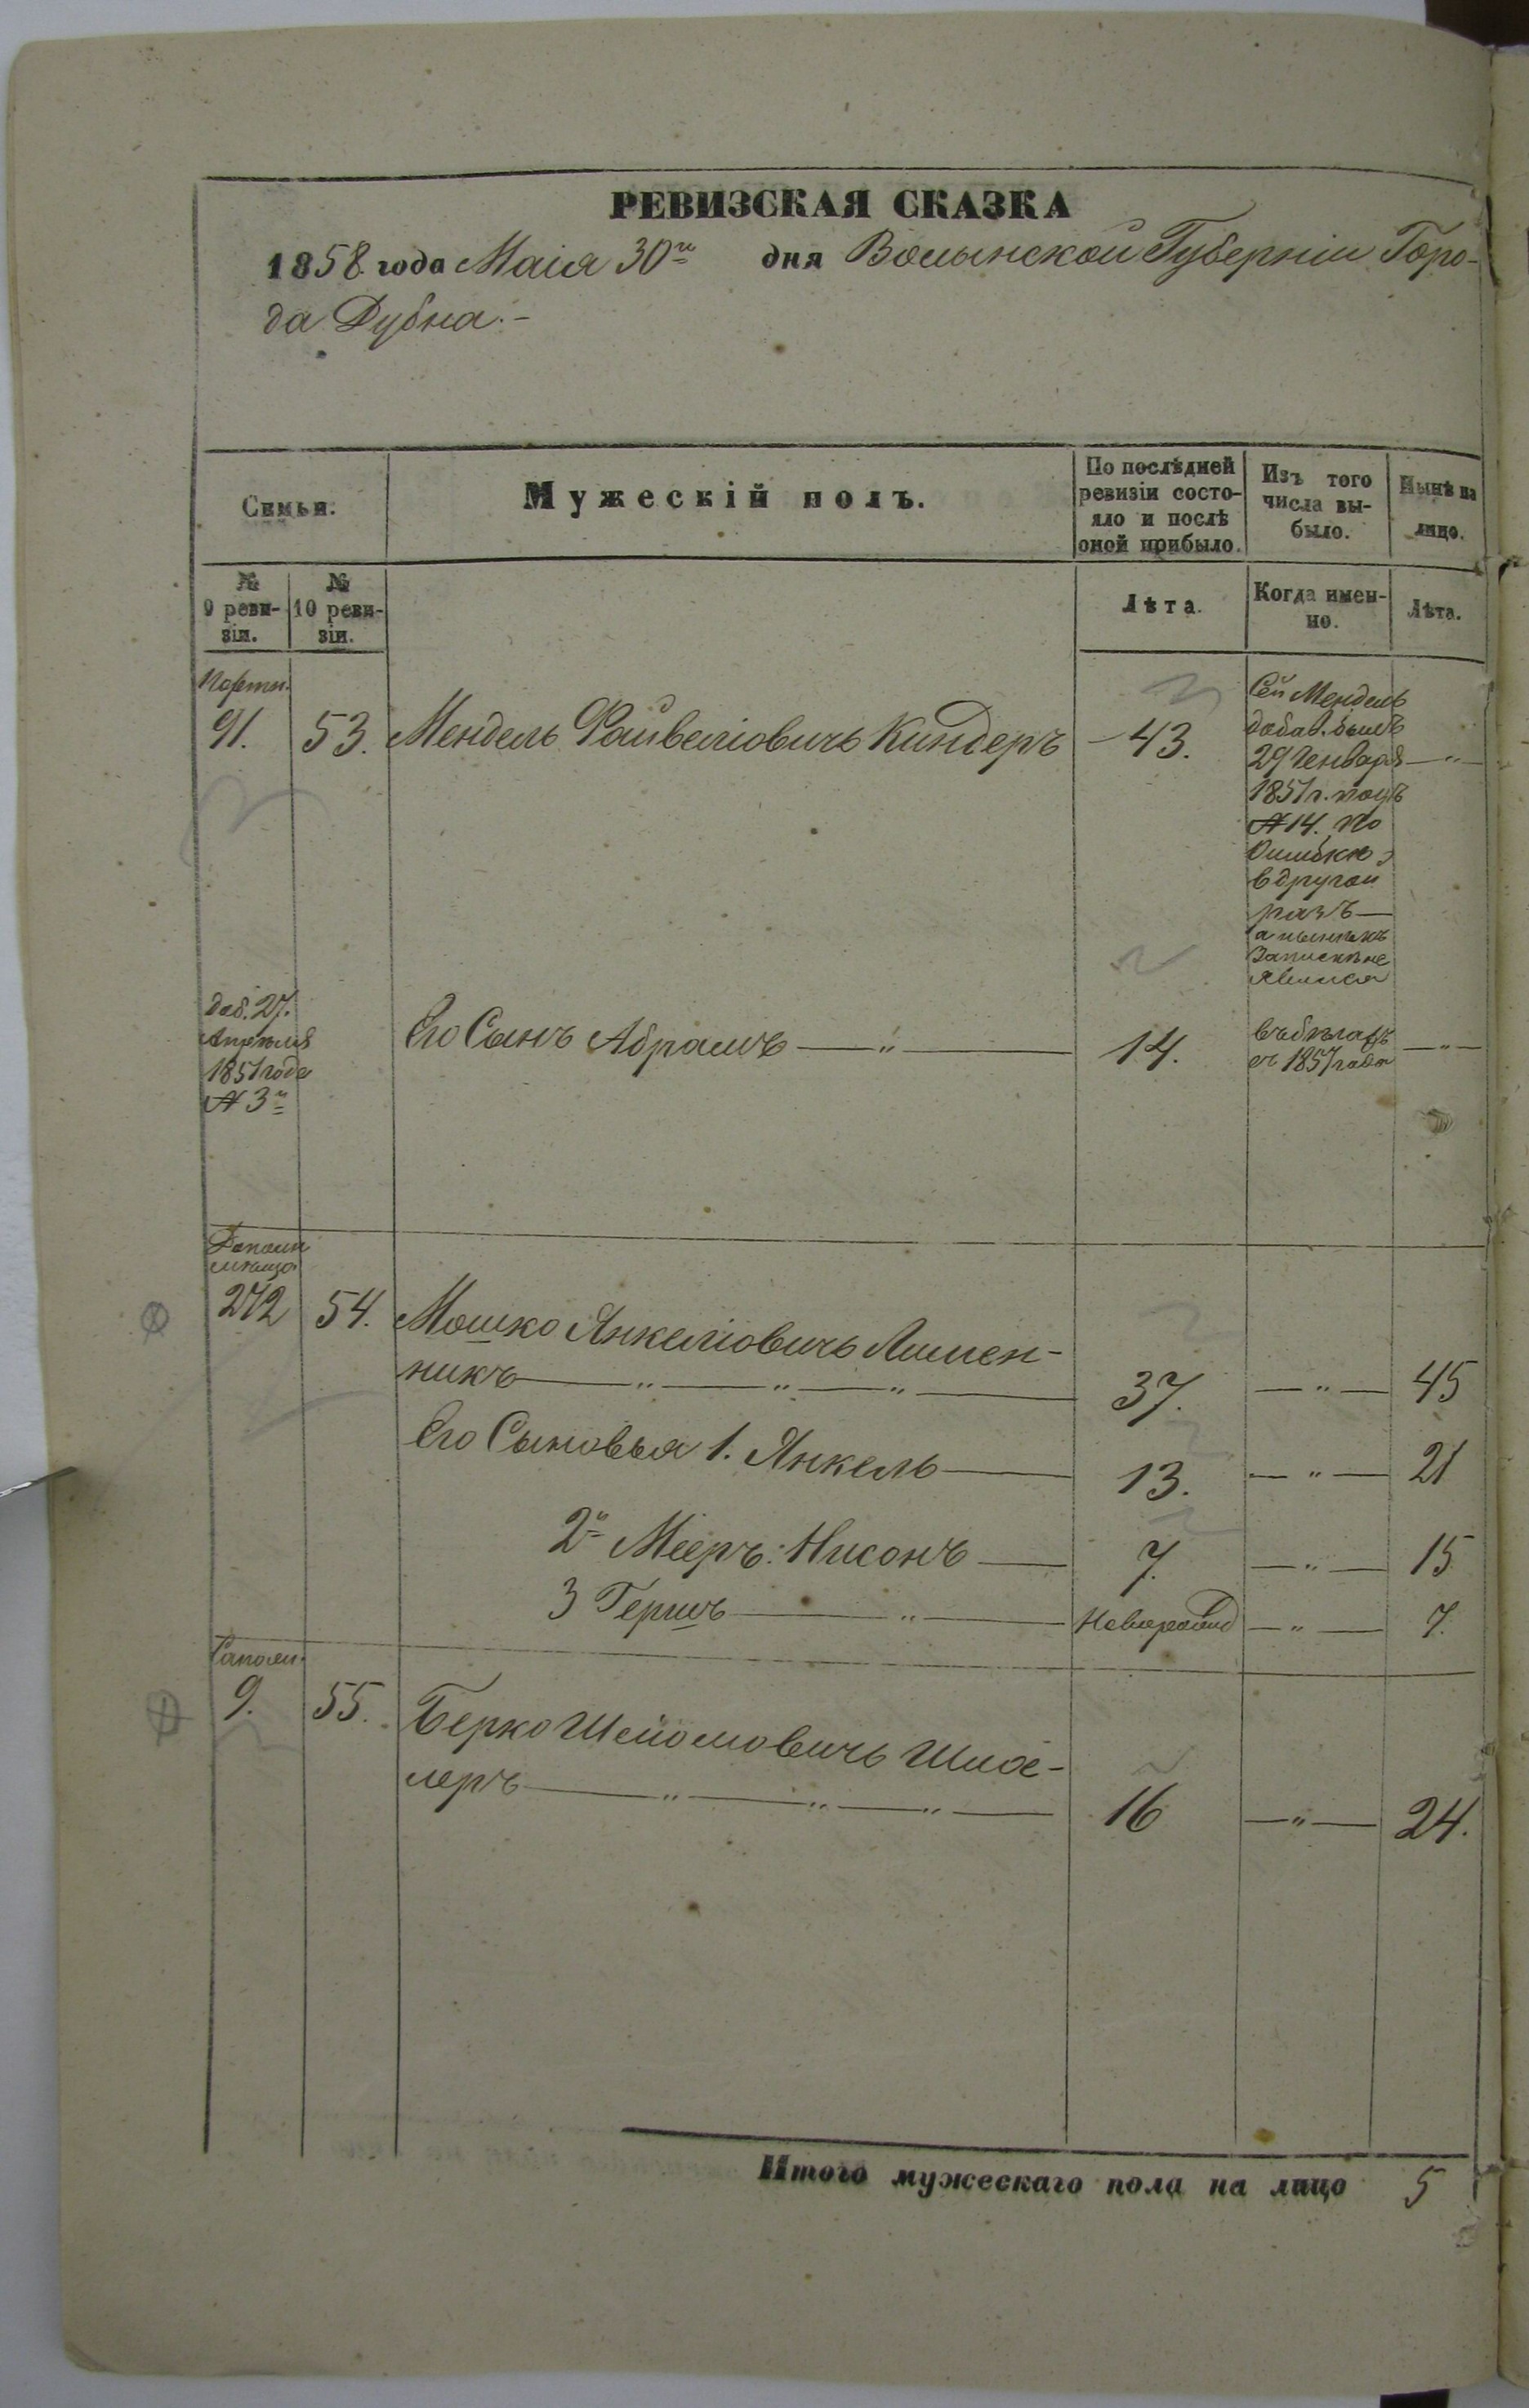 РЕВИЗСКАЯ СКАЗКА
1858 года Маія 30го дня Волынской Губерніи Горо-
да Дубна.-
Семьи.
Мужескій полъ.
По послѣдней
ревизіи состо-
яло и послѣ
оной прибыло.
Изъ того
числа вы-
было.
Нынѣ на
лицо.
№
9 реви-
зіи.
№
10 реви-
зіи.
Лѣта.
Когда имен-
но.
Лѣта.
91. 53. Мендель Файвеліовичъ Киндеръ 43.
Сей Мендель
добав. былъ
29 Генваря — " —
1851 г. подъ
№ 14. по
Ошибкѣ
в другой
разъ —
а нынѣ къ
Запискѣ не
Явился
доб. 27.
Апрѣля
1851 года
№ 3й
Его Сынъ Абрамъ — " — 14.
въ бѣгахъ
съ 1851 года — " —
272 54. Мошко Янкеліовичъ Лимен-
никъ — " — " — " — 37. — " — 45
Его Сыновья 1. Янкель — 13. — " — 21
2й Мееръ: Нисонъ — 7. — " — 15
3 Гершъ — " — — " — 7.
9. 55. Берко Шлiомовичъ
леръ — " — " — " — 16 — " — 24.
Итого мужескаго пола на лицо 5